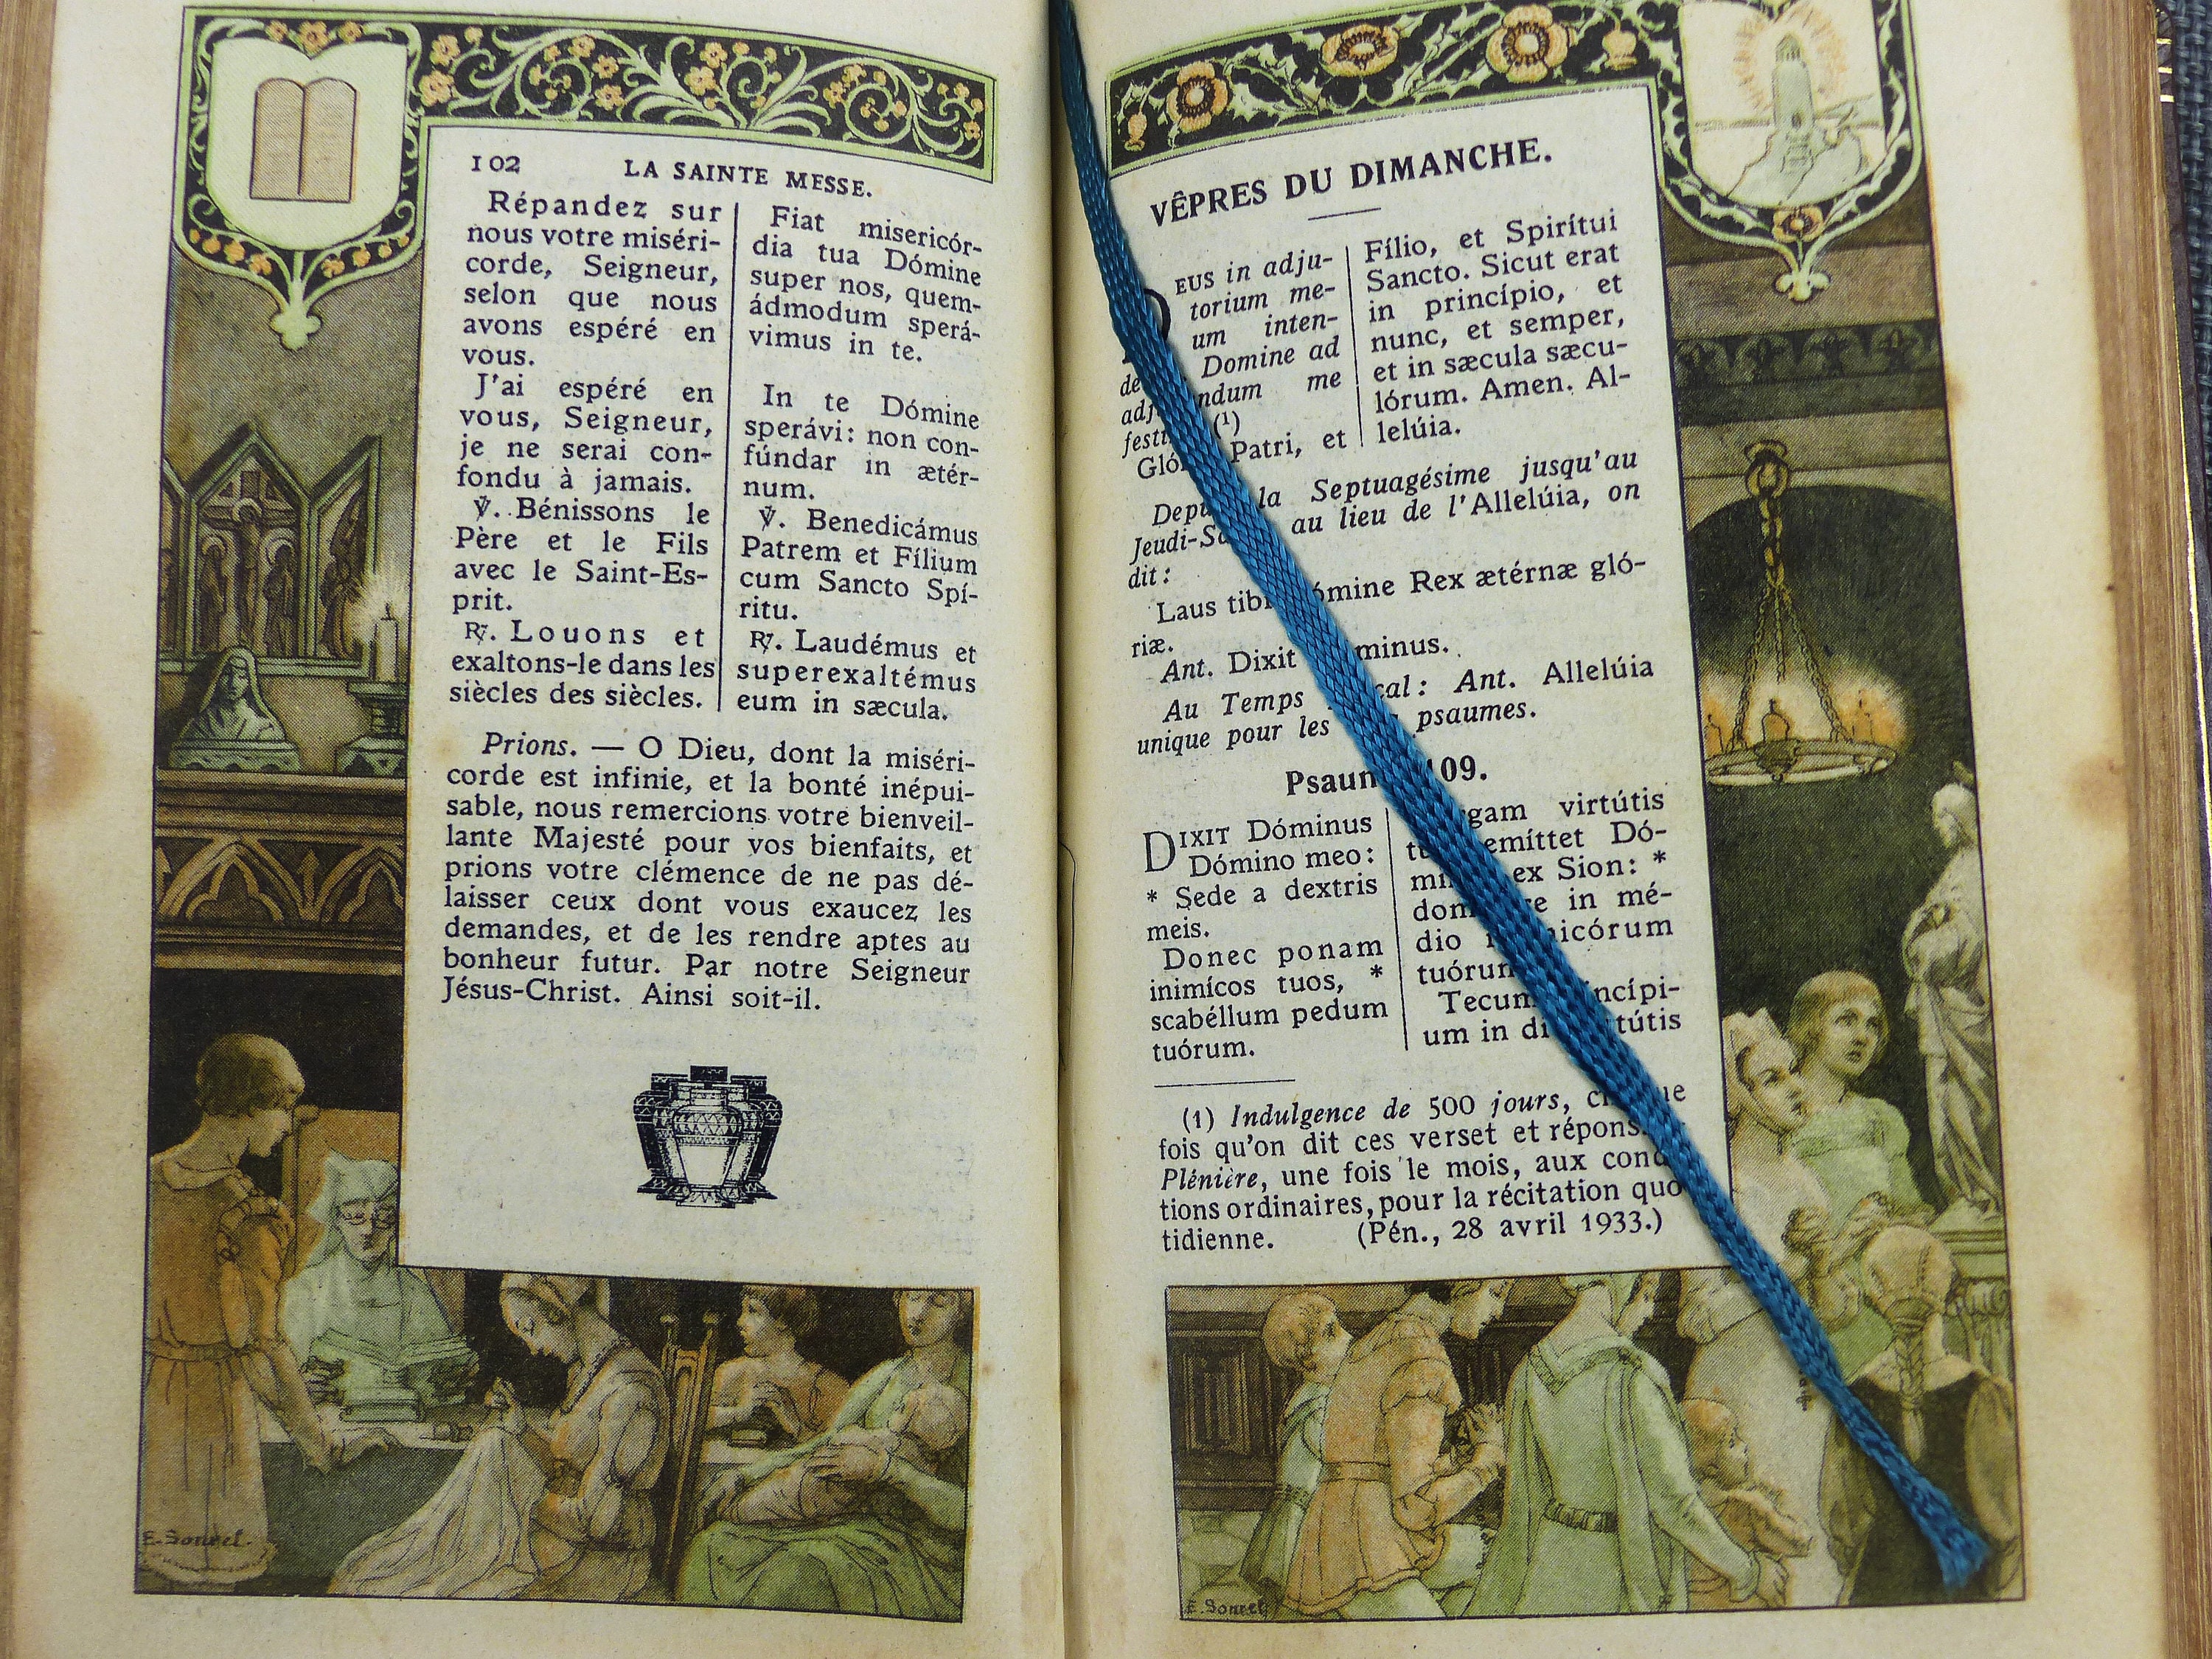 102 LA SAINTE MESSE.
Répandez sur
nous votre miséri-
corde, Seigneur,
selon que nous
avons espéré en
vous.
J'ai espéré en
vous, Seigneur,
je ne serai con-
fondu à jamais.
℣. Bénissons le
Père et le Fils
avec le Saint-Es-
prit.
℟. Louons et
exaltons-le dans les
siècles des siècles.
Fiat misericór-
dia tua Dómine
super nos, quem-
ádmodum sperá-
vimus in te.
In te Dómine
sperávi: non con-
fúndar in ætér-
num.
℣. Benedicámus
Patrem et Fílium
cum Sancto Spí-
ritu.
℟. Laudémus et
superexaltémus
eum in sæcula.
Prions. — O Dieu, dont la miséri-
corde est infinie, et la bonté inépui-
sable, nous remercions votre bienveil-
lante Majesté pour vos bienfaits, et
prions votre clémence de ne pas dé-
laisser ceux dont vous exaucez les
demandes, et de les rendre aptes au
bonheur futur. Par notre Seigneur
Jésus-Christ. Ainsi soit-il.
E. Sourel
VÊPRES DU DIMANCHE.
EUS in adju-
torium me-
um inten-
Domine ad
me
(1)
Patri, et
Fílio, et Spirítui
Sancto. Sicut erat
in princípio, et
nunc, et semper,
et in sæcula sæcu-
lórum. Amen. Al-
lelúia.
la Septuagésime jusqu'au
au lieu de l'Allelúia, on
dit:
Laus Rex ætérnæ gló-
riæ.
Ant. Dixit
Au Temps : Ant. Allelúia
unique pour les psaumes.
109.
DIXIT Dóminus
Dómino meo:
* Sede a dextris
meis.
Donec ponam
inimícos tuos, *
scabéllum pedum
tuórum.
virtútis
emíttet Dó-
ex Sion: *
in mé-
dio
um in
(1) Indulgence de 500 jours,
fois qu'on dit ces verset et
Plénière, une fois le mois, aux
tions ordinaires, pour la récitation quo
tidienne. (Pén., 28 avril 1933.)
E. Sourel